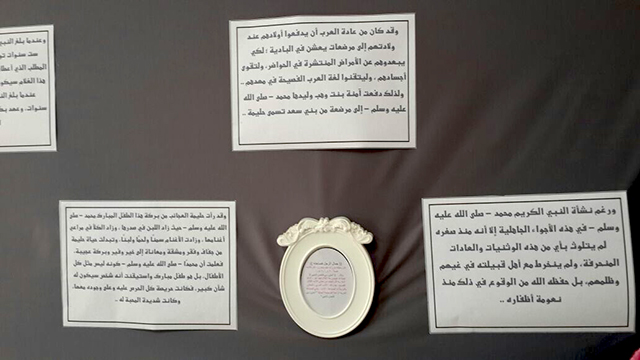 وقد كان من عادة العرب أن يدفعوا أولادهم عند
ولادتهم إلى مرضعات يعشن في البادية ؛ لكي
يبعدوهم عن الأمراض المنتشرة في الحواضر، ولتقوى
أجسادهم ، وليتقنوا لغة العرب الفصيحة في مهدهم ..
ولذلك دفعت آمنة بنت وهب وليدها محمد – صلى الله
عليه وسلم – إلى مرضعة من بني سعد تسمى حليمة ..
وعندما بلغ النبي
ست سنوات
المطلب الذي
هذا الغلام سيكون
عندما بلغ
سنوات، وعهد
ورغم نشأة النبي الكريم محمد – صلى الله عليه
وسلم – في هذه الأجواء الجاهلية إلا أنه منذ صغره
لم يتلوث بأي من هذه الوثنيات والعادات
المنحرفة، ولم ينخرط مع أهل قبيلته في غيهم
وظلمهم، بل حفظه الله من الوقوع في ذلك منذ
نعومة أظفاره ..
وقد رأت حليمة العجائب من بركة هذا الطفل المبارك محمد – صلى
الله عليه وسلم – حيث زاد اللبن في صدرها، وزاد الكلأ في مراعي
أغنامها ، وزادت الأغنام سمناً ولحماً ولبناً، وتبدلت حياة حليمة
من جفاف وفقر ومشقة ومعاناة إلى خير وفير وبركة عجيبة،
فعلمت أن محمداً – صلى الله عليه وسلم – كونه ليس مثل كل
الأطفال، بل هو طفل مبارك واستيقنت أنه شخص سيكون له
شأن كبير، فكانت حريصة كل الحرص عليه وعلى وجوده معها،
وكانت شديدة المحبة له ..